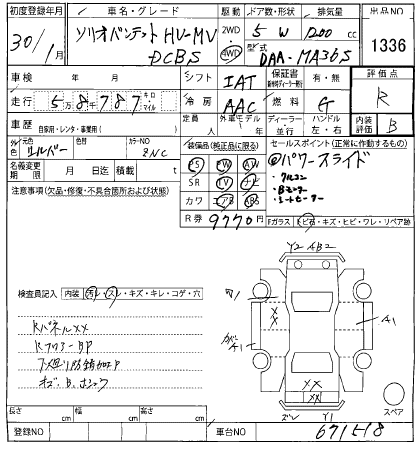 初度登録年月 車名・グレード 駆動 ドア数・形状 排気量 出品NO
30/1月 ソリオバンディット HV-MV DCBS 2WD 4WD 5 W 1200 cc 1336
型式 DAA-MA36S
車検 年 月 シフト IAT 保証書 有・無 評価点
走行 5万8千787 キロ マイル 冷房 AAC 燃料 G R
車歴 自家用・レンタ・事業用( ) 定員 人 外車モデル 年 ディーラー 並行 ハンドル 左・右 内装評価 B
外色 元色 シルバー 色替 カラーNO ZNC
装備品(純正品に限る) セールスポイント(正常に作動するもの)
名義変更期限 月 日迄 積載 t
PS PW AW
SR TV ナビ
カワ エアB ABS
R券 9770円
@パワースライド
・Bモーター
・シートヒーター
注意事項(欠品・修復・不具合箇所および状態)
Fガラス 飛石・キズ・ヒビ・ワレ・リペア跡
検査員記入 内装 汚レ・スレ・キズ・キレ・コゲ・穴
RパネルXX
Y2 AB2
A1
XX
A1
XX
XX
Y1
スペア
長さ cm 幅 cm 高さ cm
登録NO 車台NO 671518